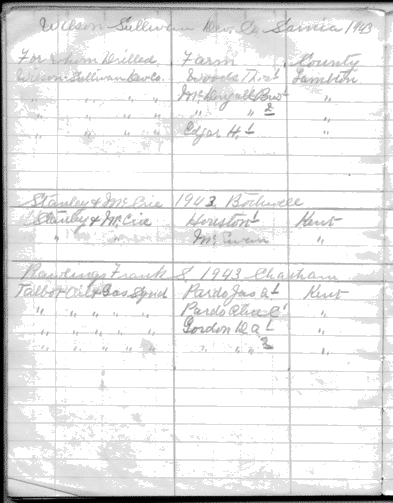 Wilson-Sullivan Dev. Co. Sarnia 1943
For whom Drilled Farm County
Wilson-Sullivan Dev Co. Woods Thos 1 Lambton
" " " " McDougall Bros 1 "
" " " " " " 2 "
" " " " Edgar H. 1 "
Stanley & McCrie 1943 Bothwell
Stanley & McCrie Houston 1 Kent
" " McEwen "
Rawlings Frank S 1943 Chatham
Talbot Oil & Gas Synd Pardo Jas A 1 Kent
" " " " " Pardo Olive C 1 "
" " " " " Gordon D A 1 "
" " " " " " " " 2 "